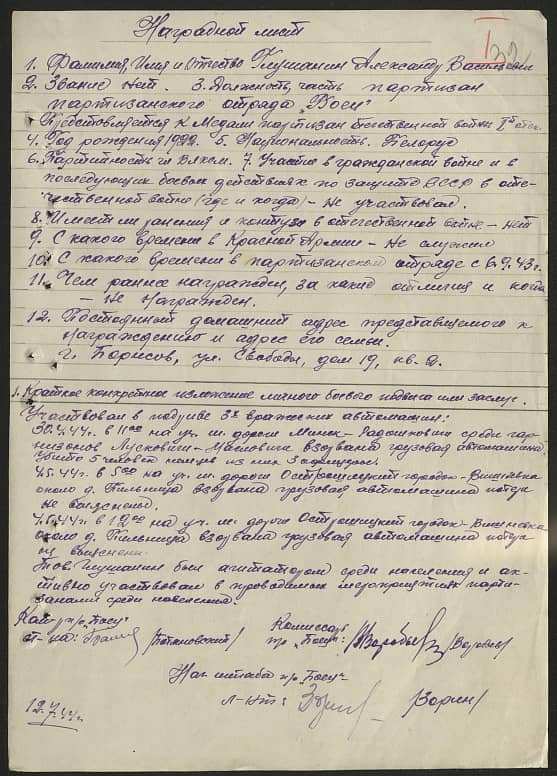 Наградной лист
1. Фамилия, Имя и Отчество Глушанин Александр Васильевич
2. Звание нет. 3. Должность, часть партизан
партизанского отряда "Боец"
Представляется к Медали партизан отечественной войны II ой степ.
4. Год рождения 1922. 5. Национальность. Белорус
6. Партийность чл ВЛКСМ. 7. Участие в гражданской войне и в
последующих боевых действиях по защите СССР в оте-
чественной войне /где и когда/ - Не участвовал.
8. Имеет ли ранения и контузии в отечественной войне - нет
9. С какого времени в Красной Армии - Не служил
10. С какого времени в партизанской отряде с 6.9.43г.
11. Чем ранее награжден, за какие отличия и когда
- Не награжден.
12. Постоянный домашний адрес представляемого к
награждению и адрес его семьи.
г. Борисов, ул. Свободы, дом 19, кв. 2.
1. Краткое конкретное изложение личного боевого подвига или заслуг.
Участвовал в подрыве 3х вражеских автомашин:
30.4.44г. в 11 00 на уч. ш. дороги Минск - Радошковичи среди гар-
низонов взорвана грузовая автомашина
убито 5 человек немцев из них 3 офицера.
4.5.44г. в 5 00 на уч. ш. дороги Острошицкий городок - Вишневка
около д. Пильница взорвана грузовая автомашина потери
не выяснены.
7.5.44г в 12 00 на уч. ш. дороги Острошицкий городок - Вишневка
около д. Пильница взорвана грузовая автомашина потери
не выяснени.
Тов. Глушанин был агитатором среди населения и ак-
тивно участвовал в проводимых мероприятиях парти-
занами среди населения.
Ком-р п/о "Боец"
ст-на:
Комиссар
п/о "Боец":
Нач. штаба п/о "Боец"
л-нт: /Зорин/
12.7.44г.